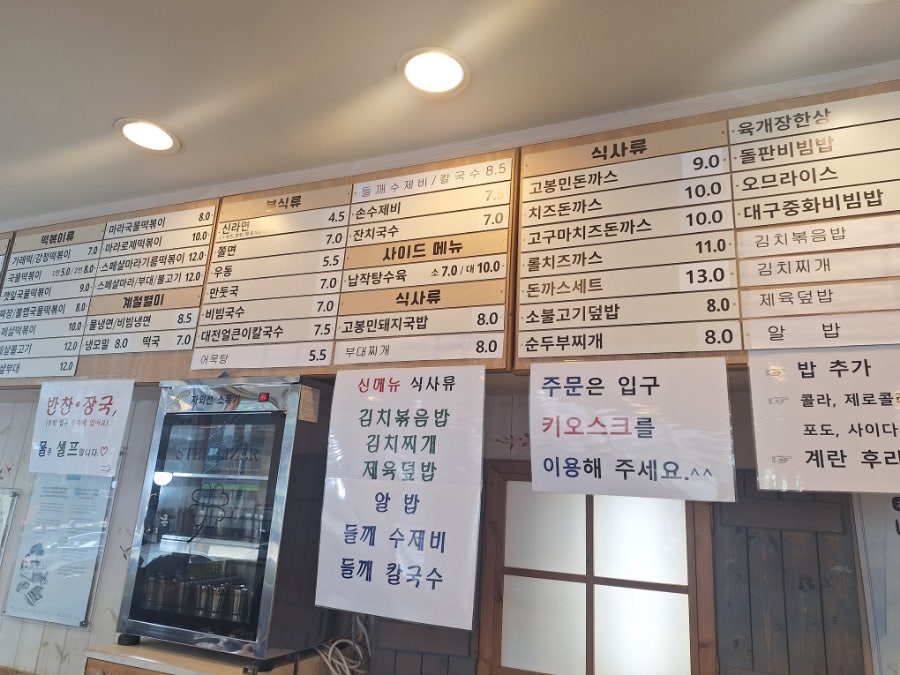 떡볶이류
가래떡/강정떡볶이 7.0
국물떡볶이 1인 5.0 / 2인 8.0
깻잎국물떡볶이 9.0
짜장/불맵국물떡볶이 8.0
10.0
12.0
12.0
마라국물떡볶이 8.0
마라로제떡볶이 10.0
스페셜마라기름떡볶이 12.0
스페셜마라/부대/불고기 12.0
계절별미
물냉면/비빔냉면 8.5
냉모밀 8.0 떡국 7.0
분식류
신라면 4.5
쫄면 7.0
우동 5.5
만둣국 7.0
비빔국수 7.0
대전얼큰이칼국수 7.5
어묵탕 5.5
들깨수제비/칼국수 8.5
손수제비 7.5
잔치국수 7.0
사이드 메뉴
납작탕수육 소 7.0 / 대 10.0
식사류
고봉민돼지국밥 8.0
부대찌개 8.0
식사류
고봉민돈까스 9.0
치즈돈까스 10.0
고구마치즈돈까스 10.0
롤치즈까스 11.0
돈까스세트 13.0
소불고기덮밥 8.0
순두부찌개 8.0
육개장한상
돌판비빔밥
오므라이스
대구중화비빔밥
김치볶음밥
김치찌개
제육덮밥
알 밥
반찬•장국,
물은 셀프입니다.♡
자외선 소독기
STERILIZER
신메뉴 식사류
김치볶음밥
김치찌개
제육덮밥
알 밥
들깨 수제비
들깨 칼국수
주문은 입구
키오스크를
이용해 주세요.^^
☞ 밥 추가
☞ 콜라, 제로콜
포도, 사이다
☞ 계란 후라